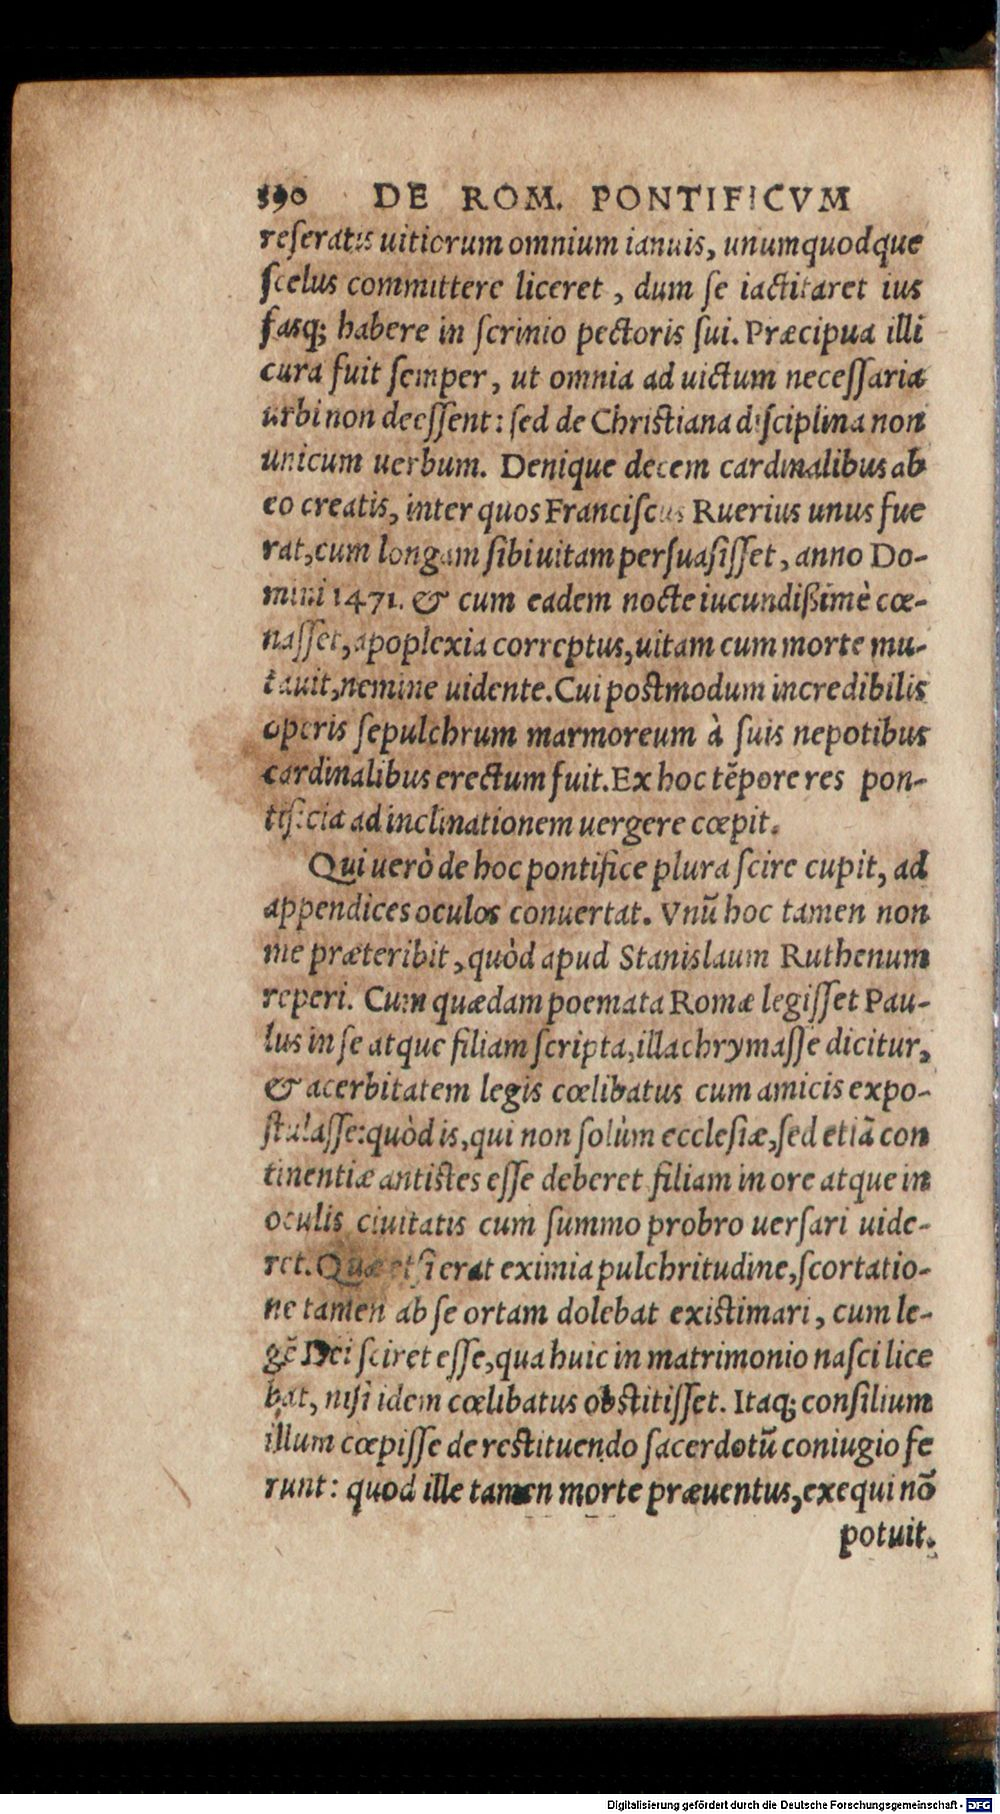 390 DE ROM. PONTIFICVM
reſeratis uitiorum omnium ianuis, unumquodque
ſcelus committere liceret, dum ſe iactitaret ius
faſq; habere in ſcrinio pectoris ſui. Præcipua illi
cura fuit ſemper, ut omnia ad uictum neceſſaria
urbi non deeſſent: ſed de Chriſtiana diſciplina non
unicum uerbum. Denique decem cardinalibus ab
eo creatis, inter quos Franciſcus Ruerius unus fue
rat, cum longam ſibi uitam perſuaſiſſet, anno Do-
mini 1471. & cum eadem nocte iucundißimè cœ-
naſſet, apoplexia correptus, uitam cum morte mu-
tauit, nemine uidente. Cui poſtmodum incredibilis
operis ſepulchrum marmoreum à ſuis nepotibus
cardinalibus erectum fuit. Ex hoc tẽpore res pon-
tificia ad inclinationem uergere cœpit.
Qui uerò de hoc pontifice plura ſcire cupit, ad
appendices oculos conuertat. Vnũ hoc tamen non
me præteribit, quòd apud Stanislaum Ruthenum
reperi. Cum quædam poemata Romæ legiſſet Pau-
lus in ſe atque filiam ſcripta, illachrymaſſe dicitur,
& acerbitatem legis cœlibatus cum amicis expo-
ſtulaſſe: quòd is, qui non ſolùm eccleſiæ, ſed etiã con
tinentiæ antiſtes eſſe deberet filiam in ore atque in
oculis ciuitatis cum ſummo probro uerſari uide-
ret. Quæ etſi erat eximia pulchritudine, ſcortatio-
ne tamen ab ſe ortam dolebat exiſtimari, cum le-
gẽ Dei ſciret eſſe, qua huic in matrimonio naſci lice
bat, niſi idem cœlibatus obſtitiſſet. Itaq; conſilium
illum cœpiſſe de reſtituendo ſacerdotũ coniugio fe
runt: quod ille tamen morte præuentus, exequi nõ
potuit.
Digitalisierung gefördert durch die Deutsche Forschungsgemeinschaft - DFG